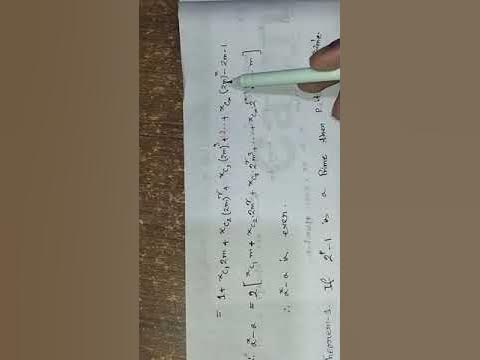 = 1 + ˣC₁ 2m + ˣC₂ (2m)² + ˣC₃ (2m)³ + ... + ˣCₓ (2m)ˣ - 2m - 1
∴ aˣ - a = 2 [ ˣC₁ m + ˣC₂ 2m² + ˣC₃ 2²m³ + ... + ˣCₓ 2 - m ]
∴ aˣ - a is even.
Theorem-1. If 2ᴾ - 1 is a prime then P is